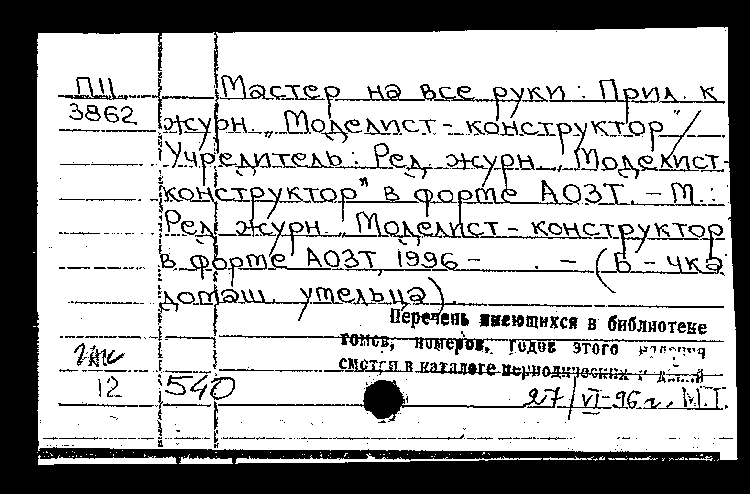 П11 Мастер на все руки : Прил. к
3862 журн. „Моделист-конструктор" /
Учредитель : Ред. журн. „Моделист-
конструктор" в форме АОЗТ. - М. :
Ред. журн. „Моделист-конструктор
в форме АОЗТ, 1996 - . - (Б-чка
домаш. умельца).
Перечень имеющихся в библиотеке
томов, номеров, годов этого издания
смотри в каталоге периодических изданий
12 540 27/VI-96 г. М.Т.